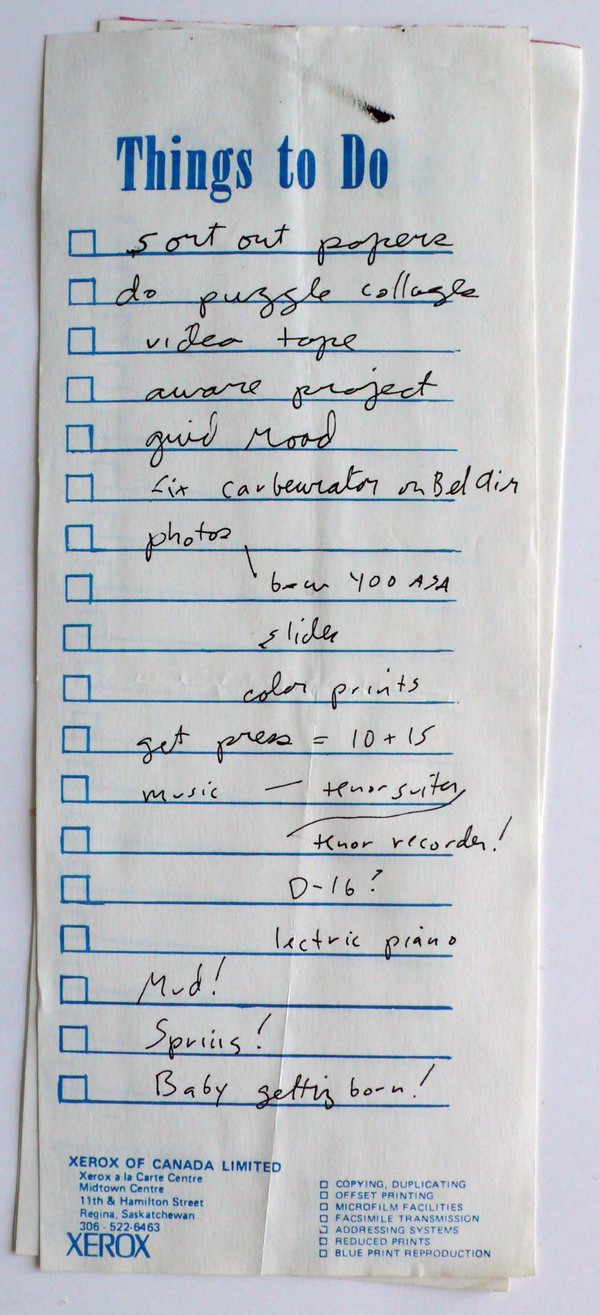 Things to Do
sort out papers
do puzzle collages
video tape
aware project
mood
fix carbeurator on Bel Air
photos
400 ASA
slides
color prints
get press = 10 + 15
music — tenor guitar
tenor recorder!
D-16?
lectric piano
Mud!
Spring!
Baby getting born!
XEROX OF CANADA LIMITED
Xerox a la Carte Centre
Midtown Centre
11th & Hamilton Street
Regina, Saskatchewan
306 - 522-6463
XEROX
COPYING, DUPLICATING
OFFSET PRINTING
MICROFILM FACILITIES
FACSIMILE TRANSMISSION
ADDRESSING SYSTEMS
REDUCED PRINTS
BLUE PRINT REPRODUCTION